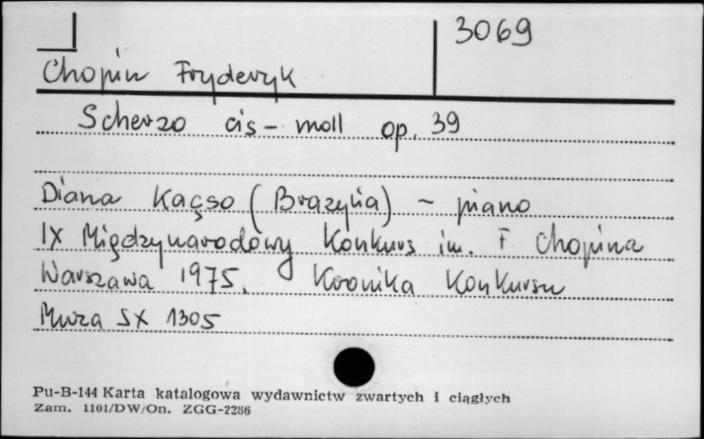 3069
Chopin Fryderyk
Scherzo cis-moll op. 39
Diana Kaçso (Brazylia) - piano
IX Międzynarodowy Konkurs im. F Chopina
Warszawa 1975. Kronika Konkursu
Muza SX 1305
Pu-B-144 Karta katalogowa wydawnictw zwartych i ciągłych
Zam. 1101/DW/On. ZGG-2286